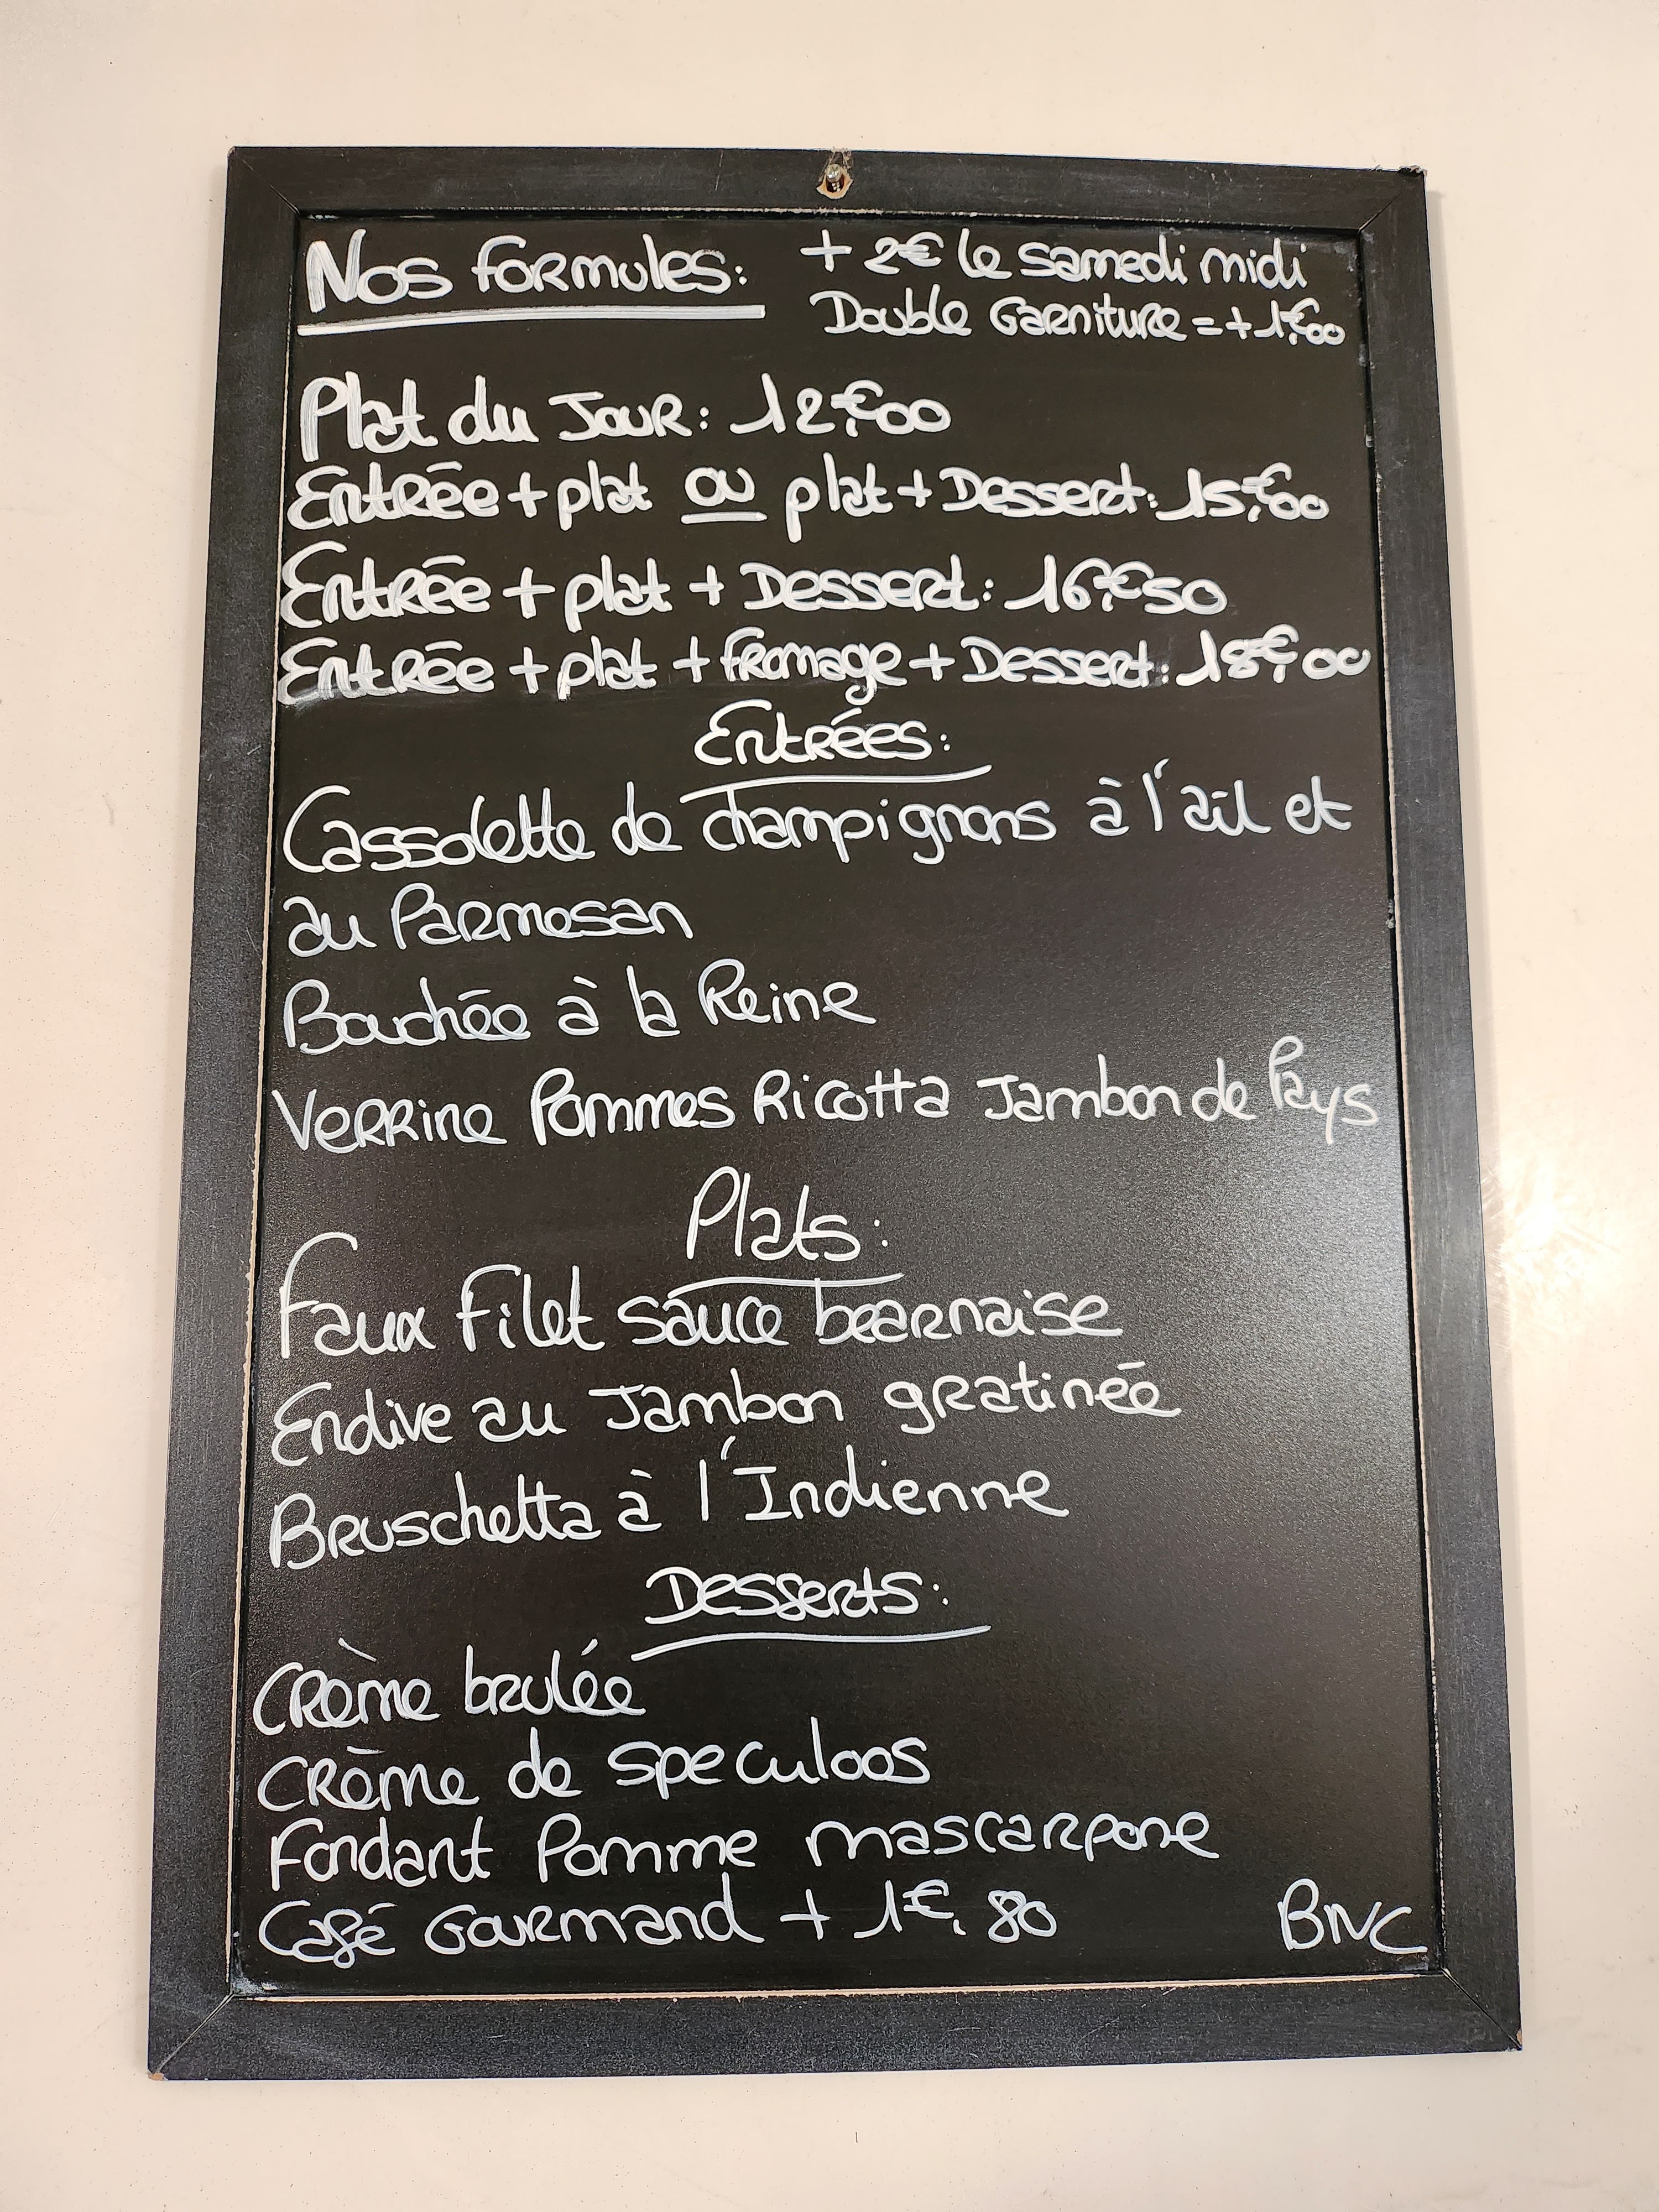 Nos formules:
+ 2€ le samedi midi
Double Garniture = + 1,€00
Plat du Jour: 12,€00
Entrée + plat ou plat + Dessert: 15,€00
Entrée + plat + Dessert: 16,€50
Entrée + plat + fromage + Dessert: 18€,00
Entrées:
Cassolette de champignons à l'ail et
au Parmesan
Bouchée à la Reine
Verrine Pommes Ricotta Jambon de Pays
Plats:
Faux Filet sauce bearnaise
Endive au Jambon gratinée
Bruschetta à l'Indienne
Desserts:
Crème brulée
Crème de speculoos
Fondant Pomme mascarpone
Café Gourmand + 1€.80
BNC